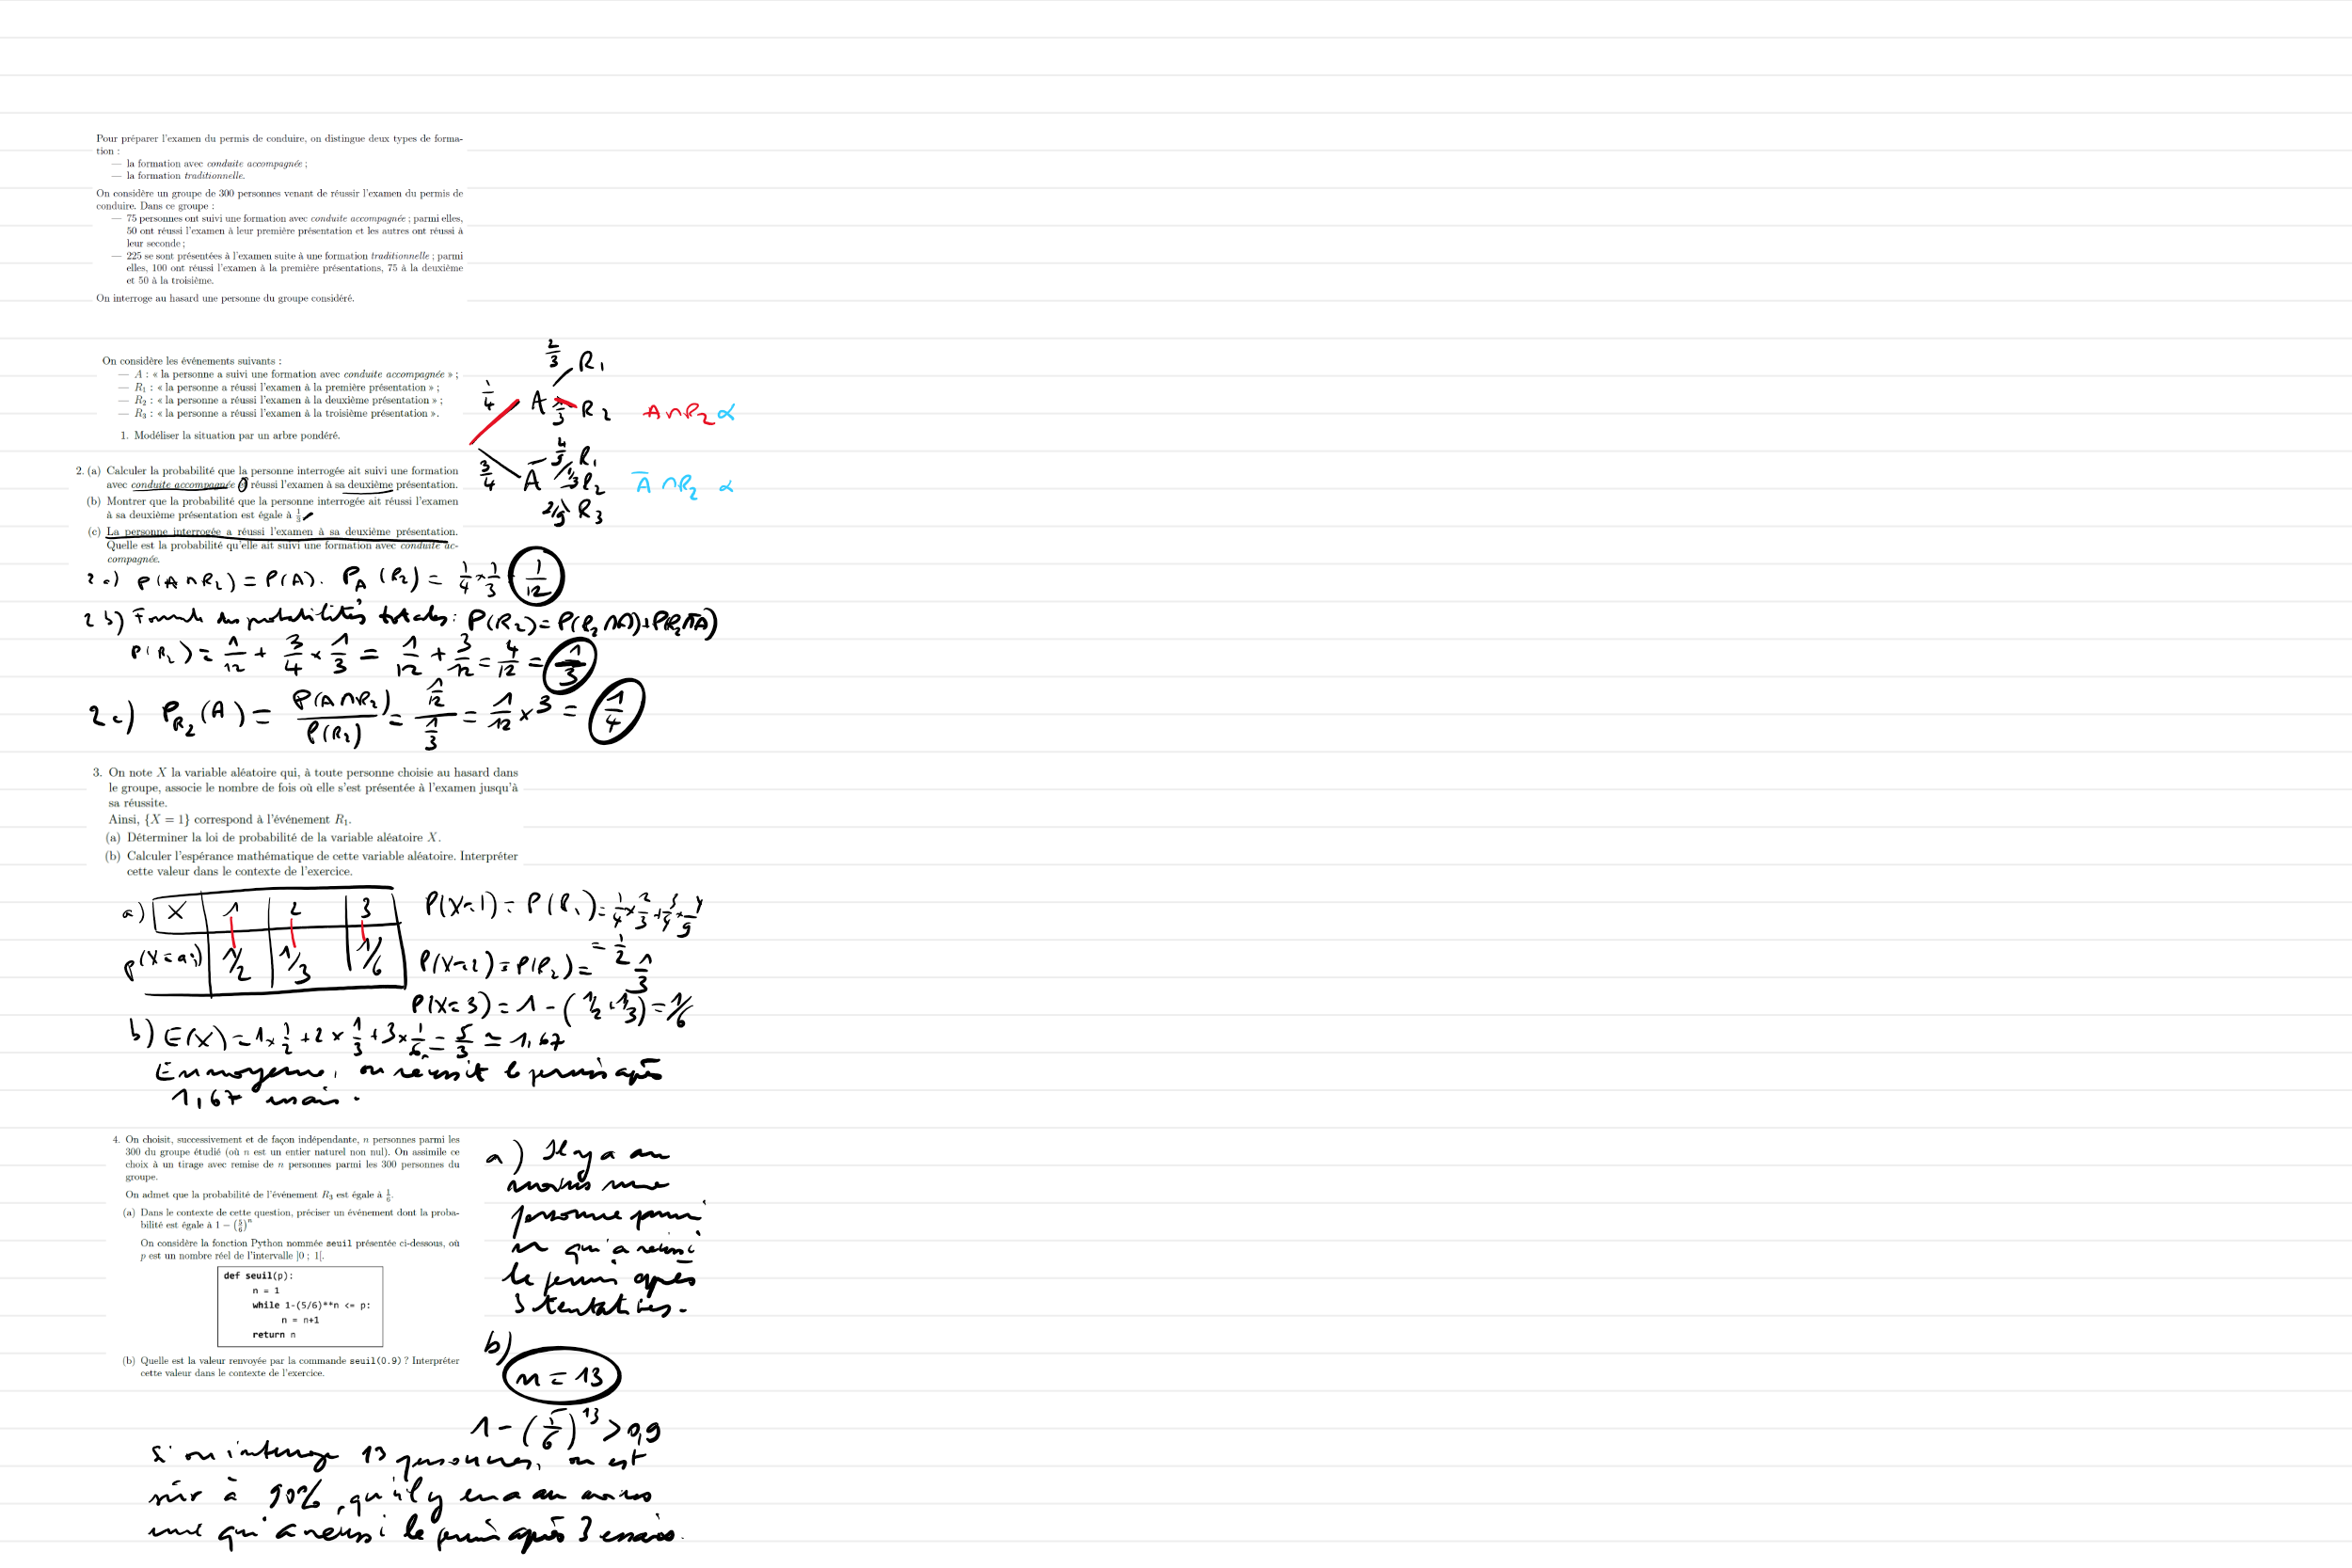 Pour préparer l'examen du permis de conduire, on distingue deux types de forma-
tion :
— la formation avec conduite accompagnée ;
— la formation traditionnelle.
On considère un groupe de 300 personnes venant de réussir l'examen du permis de
conduire. Dans ce groupe :
— 75 personnes ont suivi une formation avec conduite accompagnée ; parmi elles,
50 ont réussi l'examen à leur première présentation et les autres ont réussi à
leur seconde ;
— 225 se sont présentées à l'examen suite à une formation traditionnelle ; parmi
elles, 100 ont réussi l'examen à la première présentations, 75 à la deuxième
et 50 à la troisième.
On interroge au hasard une personne du groupe considéré.
On considère les événements suivants :
— A : « la personne a suivi une formation avec conduite accompagnée » ;
— R₁ : « la personne a réussi l'examen à la première présentation » ;
— R₂ : « la personne a réussi l'examen à la deuxième présentation » ;
— R₃ : « la personne a réussi l'examen à la troisième présentation ».
1. Modéliser la situation par un arbre pondéré.
2/3 R₁
1/4 A 1/3 R₂ A∩R₂ α
4/9 R₁
3/4 Ā 1/3 R₂ Ā∩R₂ α
2/9 R₃
2. (a) Calculer la probabilité que la personne interrogée ait suivi une formation
avec conduite accompagnée et réussi l'examen à sa deuxième présentation.
(b) Montrer que la probabilité que la personne interrogée ait réussi l'examen
à sa deuxième présentation est égale à 1/3
(c) La personne interrogée a réussi l'examen à sa deuxième présentation.
Quelle est la probabilité qu'elle ait suivi une formation avec conduite ac-
compagnée.
2a) P(A∩R₂) = P(A). P_A(R₂) = 1/4 × 1/3 = 1/12
2b) Formule des probabilités totales : P(R₂) = P(R₂∩A) + P(R₂∩Ā)
P(R₂) = 1/12 + 3/4 × 1/3 = 1/12 + 3/12 = 4/12 = 1/3
2c) P_R₂(A) = P(A∩R₂)/P(R₂) = (1/12)/(1/3) = 1/12 × 3 = 1/4
3. On note X la variable aléatoire qui, à toute personne choisie au hasard dans
le groupe, associe le nombre de fois où elle s'est présentée à l'examen jusqu'à
sa réussite.
Ainsi, {X = 1} correspond à l'événement R₁.
(a) Déterminer la loi de probabilité de la variable aléatoire X.
(b) Calculer l'espérance mathématique de cette variable aléatoire. Interpréter
cette valeur dans le contexte de l'exercice.
a) X 1 2 3
P(X=ai) 1/2 1/3 1/6
P(X=1) = P(R₁) = 1/4 × 2/3 + 3/4 × 4/9
= 1/2
P(X=2) = P(R₂) = 1/3
P(X=3) = 1 - (1/2 + 1/3) = 1/6
b) E(X) = 1 × 1/2 + 2 × 1/3 + 3 × 1/6 = 5/3 ≃ 1,67
En moyenne, on réussit le permis après
1,67 essais.
4. On choisit, successivement et de façon indépendante, n personnes parmi les
300 du groupe étudié (où n est un entier naturel non nul). On assimile ce
choix à un tirage avec remise de n personnes parmi les 300 personnes du
groupe.
On admet que la probabilité de l'événement R₃ est égale à 1/6.
(a) Dans le contexte de cette question, préciser un événement dont la proba-
bilité est égale à 1 − (5/6)ⁿ
On considère la fonction Python nommée seuil présentée ci-dessous, où
p est un nombre réel de l'intervalle ]0 ; 1[.
def seuil(p):
n = 1
while 1-(5/6)**n <= p:
n = n+1
return n
(b) Quelle est la valeur renvoyée par la commande seuil(0.9) ? Interpréter
cette valeur dans le contexte de l'exercice.
a) Il y a au
moins une
personne parmi
n qui a réussi
le permis après
3 tentatives.
b)
n = 13
1 - (5/6)^13 > 0,9
Si on interroge 13 personnes, on est
sûr à 90%, qu'il y en a au moins
une qui a réussi le permis après 3 essais.